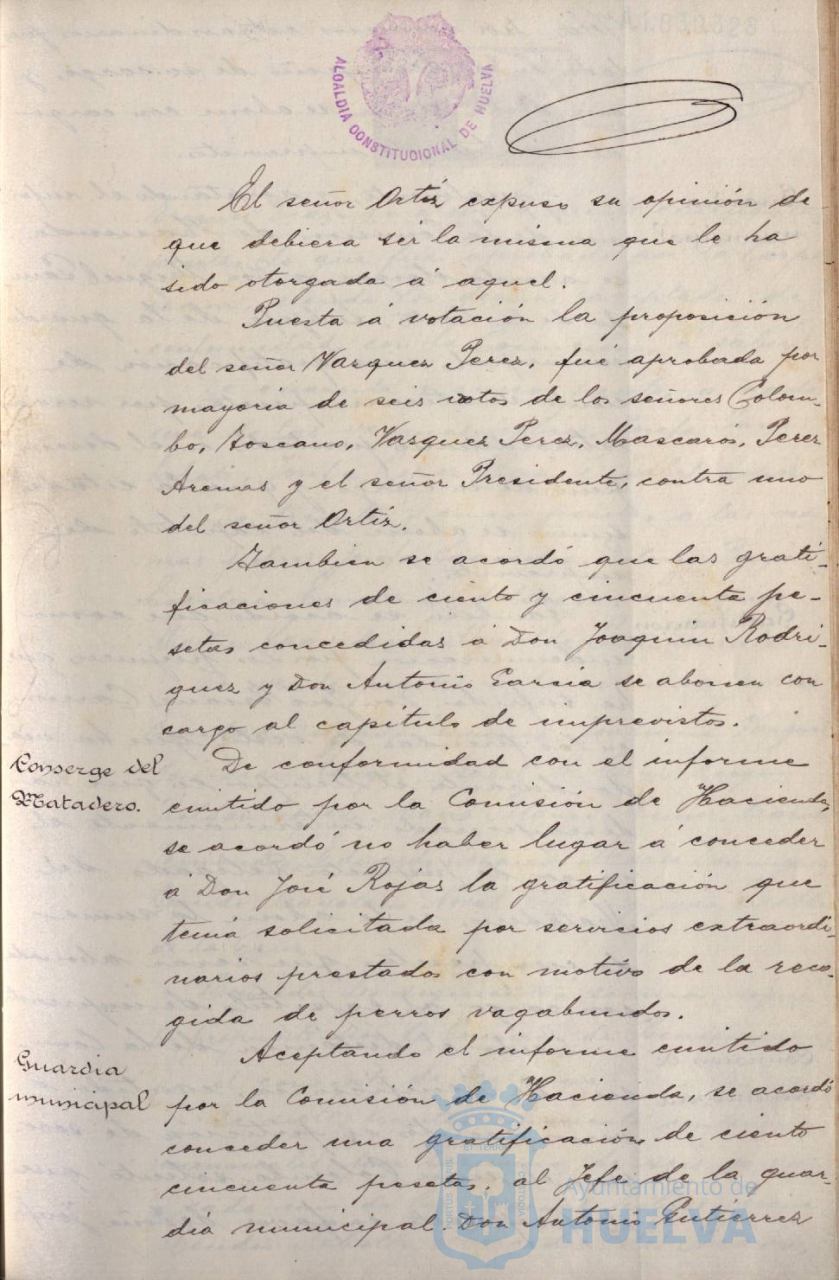 ALCALDIA CONSTITUCIONAL DE HUELVA
El señor Ortiz expuso su opinión de
que debiera ser la misma que le ha
sido otorgada á aquel.
Puesta á votación la proposición
del señor Vazquez Perez, fué aprobada por
mayoria de seis votos de los señores Colom-
bo, Toscano, Vazquez Perez, Mascarós, Perez
Arenas y el señor Presidente, contra uno
del señor Ortiz.
Tambien se acordó que las grati-
ficaciones de ciento y cincuenta pe-
setas concedidas á Don Joaquin Rodri-
guez y Don Antonio Garcia se abonen con
cargo al capitulo de imprevistos.
Conserge del
Matadero.
De conformidad con el informe
emitido por la Comisión de Hacienda,
se acordó no haber lugar á conceder
á Don José Rojas la gratificación que
tenia solicitada por servicios extraordi-
narios prestados con motivo de la reco-
gida de perros vagabundos.
Guardia
municipal
Aceptando el informe emitido
por la Comisión de Hacienda, se acordó
conceder una gratificación de ciento
cincuenta pesetas, al Jefe de la guar-
dia municipal Don Antonio Gutierrez
Ayuntamiento de
HUELVA